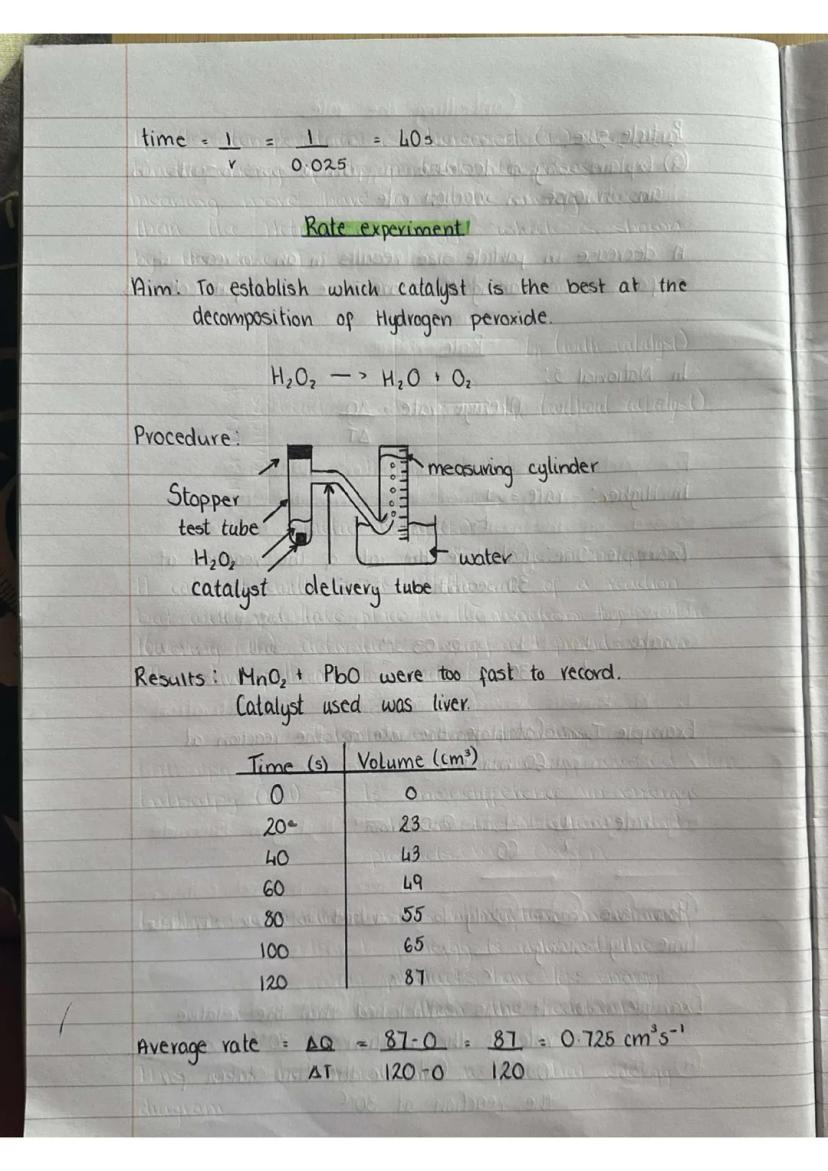 time = 1/r = 1/0.025 = 40s
Rate experiment
Aim: To establish which catalyst is the best at the
decomposition of Hydrogen peroxide.
H₂O₂ —> H₂O + O₂
Procedure:
measuring cylinder
Stopper
test tube
H₂O₂
water
catalyst delivery tube
Results: MnO₂ + PbO were too fast to record.
Catalyst used was liver.
Time (s) Volume (cm³)
0 0
20 23
40 43
60 49
80 55
100 65
120 87
Average rate = ΔQ/ΔT = 87-0/120-0 = 87/120 = 0.725 cm³s⁻¹